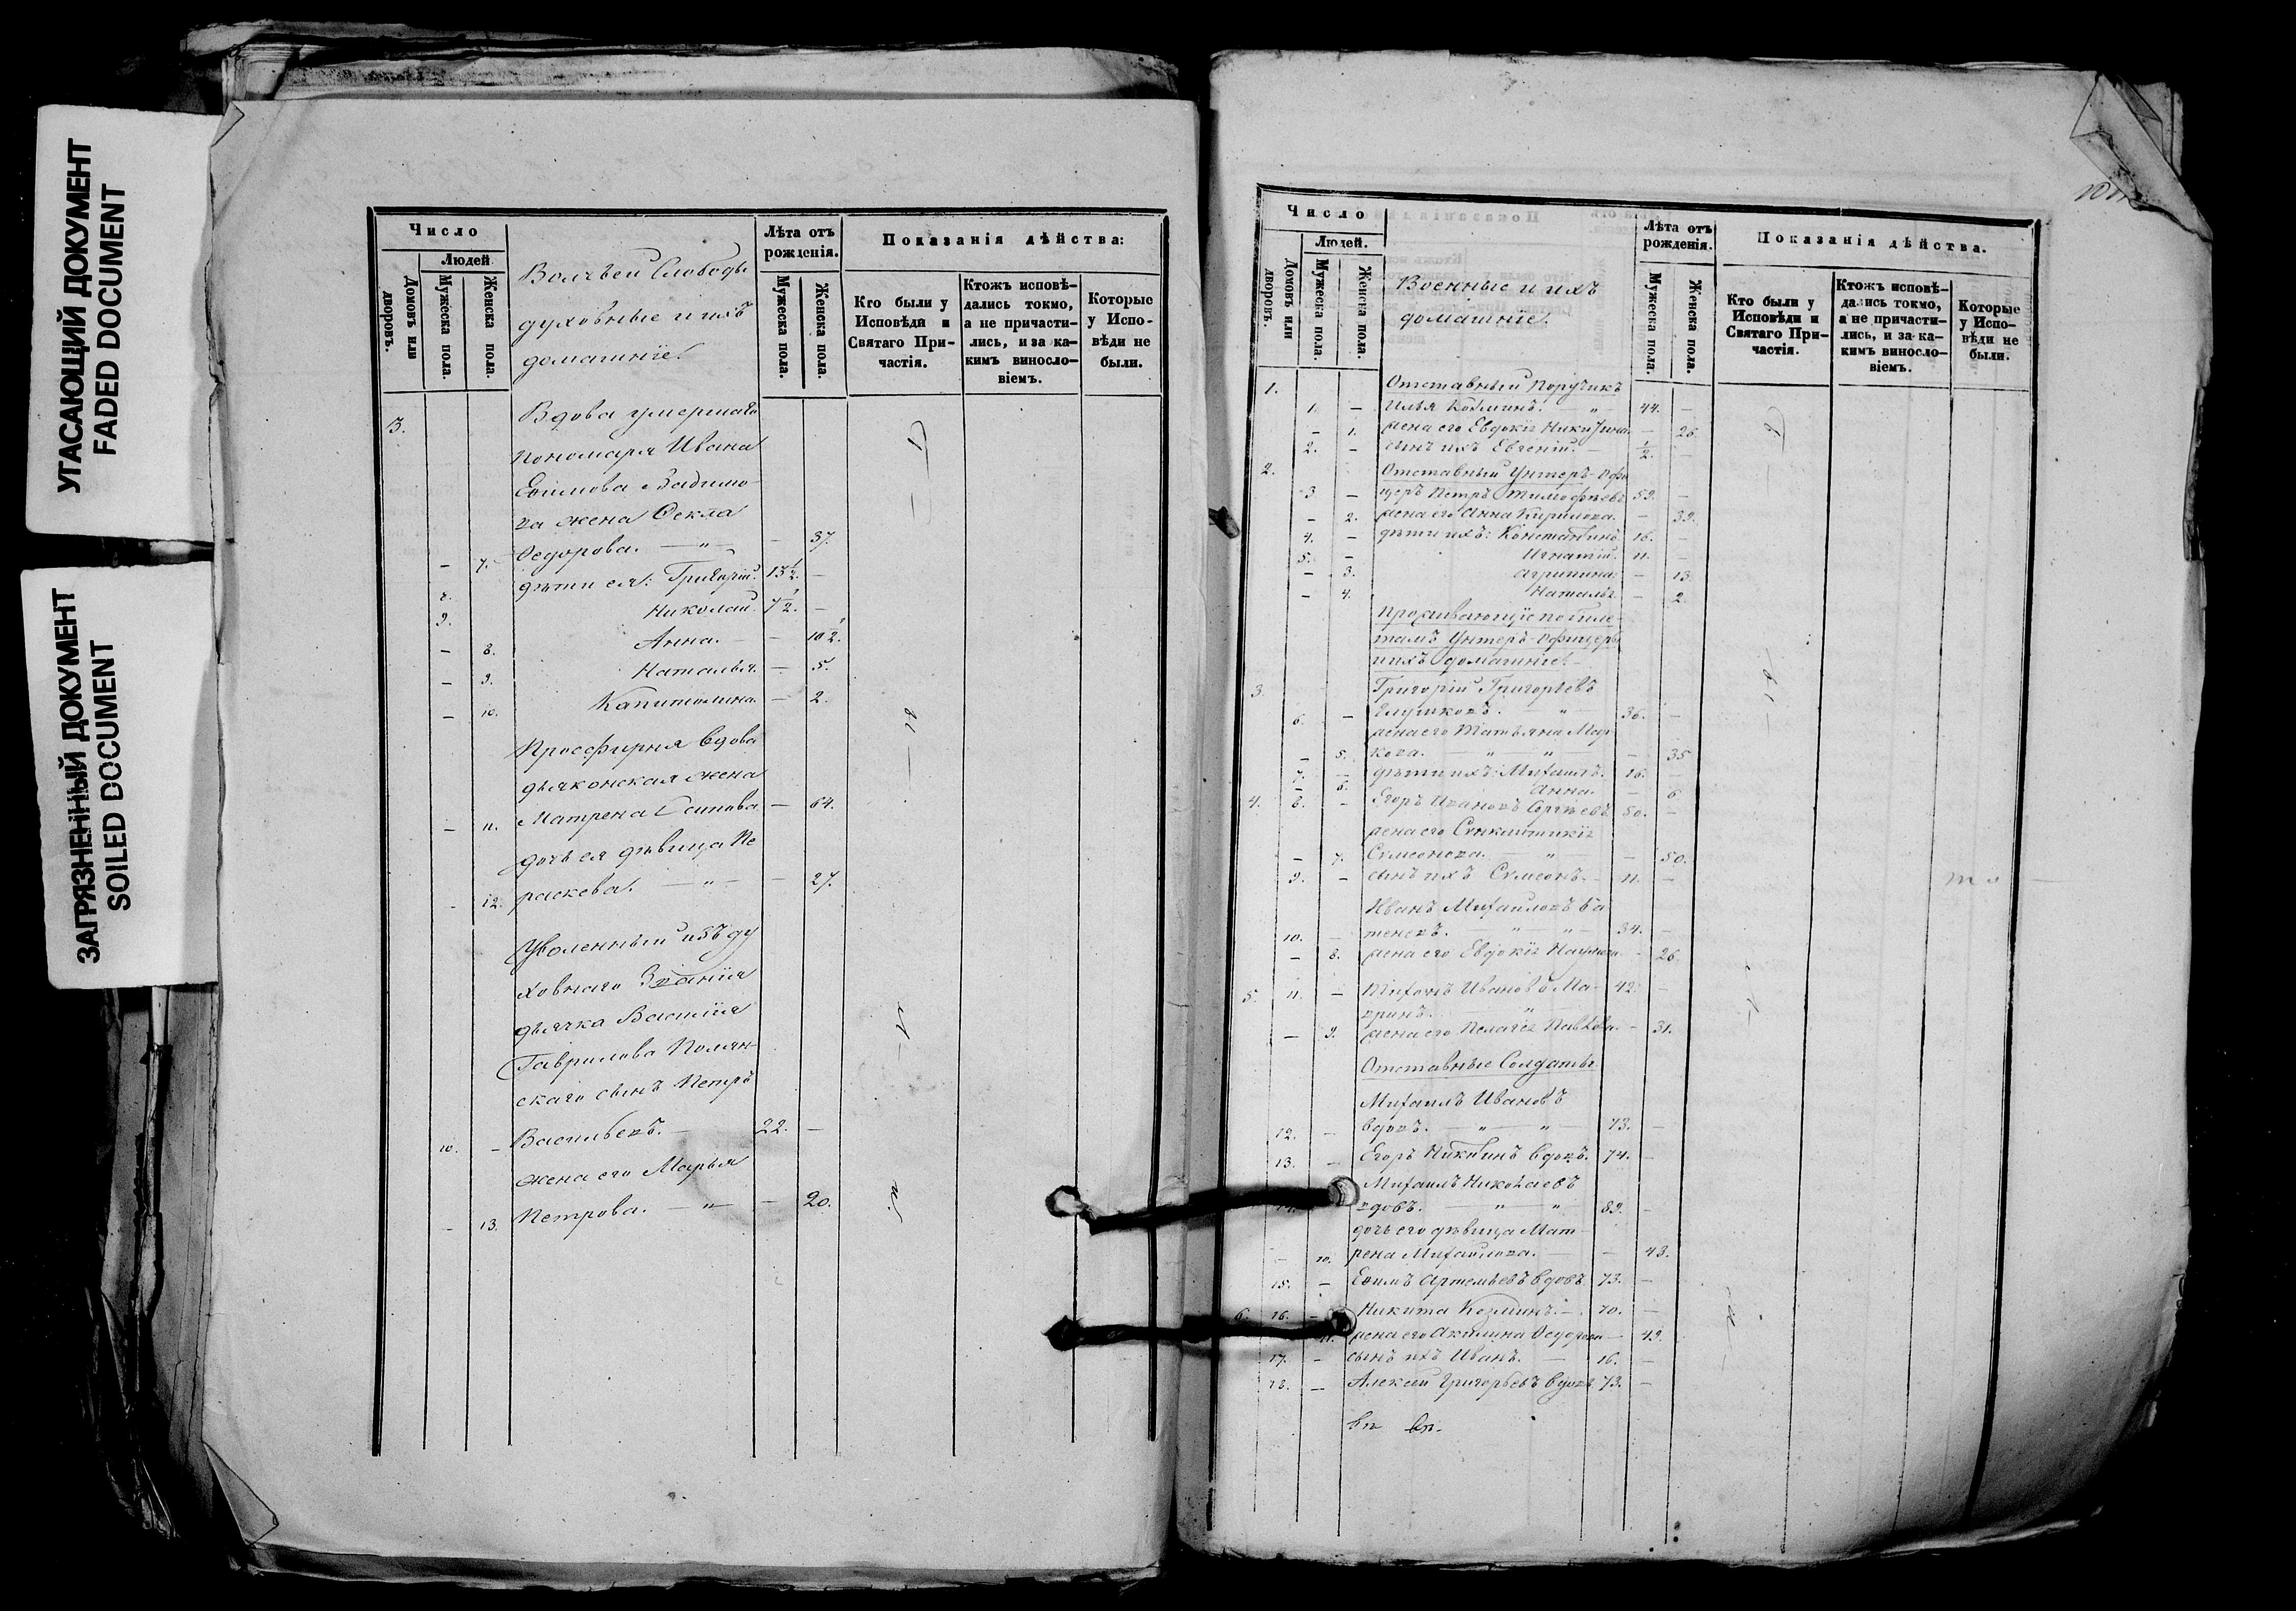 УГАСАЮЩИЙ ДОКУМЕНТ
FADED DOCUMENT
ЗАГРЯЗНЕННЫЙ ДОКУМЕНТ
SOILED DOCUMENT
Число
Людей
Домовъ или дворовъ.
Мужеска пола.
Женска пола.
Волчьей Слободы
духовные и ихъ
домашніе
Лѣта отъ рожденія.
Мужеска пола.
Женска пола.
Показанія дѣйства:
Кто были у Исповѣди и Святаго Причастія.
Ктожъ исповѣдались токмо, а не причастились, и за какимъ винословіемъ.
Которые у Исповѣди не были.
3. Вдова умершаго
пономаря Ивана
Ефимова
жена Ѳекла
– 7. Ѳедорова. — „ — – 37.
8. дѣти ея: Григорій. 13 1/2. –
9. Николай. 7 1/2. –
– 8. Анна. – – 10 1/2.
– 9. Наталья. – 5.
– 10. Капитолина. – 2.
Просфирня вдова
дьяконская жена
– 11. Матрена – 64.
дочь ея дѣвица Па
– 12. раскева. — „ — – 27.
Уволенный изъ ду
ховнаго Званія
дьячка Василія
Гаврилова Полян-
скаго сынъ Петръ
10. – Васильевъ. – 22. –
жена его Марья
– 13. Петрова. — „ — – 20.
Число
Людей.
Домовъ или дворовъ.
Мужеска пола.
Женска пола.
Военные и ихъ
домашніе.
Лѣта отъ рожденія.
Мужеска пола.
Женска пола.
Показанія дѣйства.
Кто были у Исповѣди и Святаго Причастія.
Ктожъ исповѣдались токмо, а не причастились, и за какимъ винословіемъ.
Которые у Исповѣди не были.
1. Отставный Поручикъ
1. – Илья Козминъ. — „ — 44. –
– 1. жена его Евдокія Никитина. – 26.
2. – сынъ ихъ Евгеній. – 1/2. –
2. Отставный Унтеръ-Офи
3. – церъ Петръ Тимофѣевъ 59. –
– 2. жена его Анна Кирилова. – 39.
4. – дѣти ихъ: Константинъ 16. –
5. – Игнатій. 11. –
– 3. Агрипина. – 13.
– 4. Наталья – 2.
Проживающіе по биле-
тамъ Унтеръ-Офицеры
и ихъ домашніе. –
3. Григорій Григорьевъ
6. – Глушковъ. — „ — 36. –
жена его Татьяна Мар
– 5. кова. — „ — „ — – 35
7. – дѣти ихъ: Михаилъ. 16. –
– 6. Анна. – 6
4. 8. – Егоръ Ивановъ Сергѣевъ 50. –
жена его Синклитикія
– 7. Симеонова. — „ — – 50.
9. – сынъ ихъ Симеонъ. – 11. –
Иванъ Михаиловъ Ба
10. – 34. –
– 8. жена его Евдокія – 26
5. 11. – Ивановъ Ма- 42. –
– 9. жена его Пелагея Павлова. – 31.
Отставные Солдаты
Михаилъ Ивановъ
12. – вдовъ. — „ — „ — 73. –
13. – Егоръ Никитинъ вдовъ. 74. –
Михаилъ Николаевъ
14. вдовъ. — „ — „ — 89. –
дочь его дѣвица Мат
– 10. рена Михаилова. – 43.
15. – Ефимъ Артемьевъ вдовъ 73. –
6. 16. – Никита Козминъ. — 70. –
11. жена его Акилина Ѳедорова – 49.
17. – сынъ ихъ Иванъ. — 16. –
18. – Алексѣй Григорьевъ вдовъ 73. –